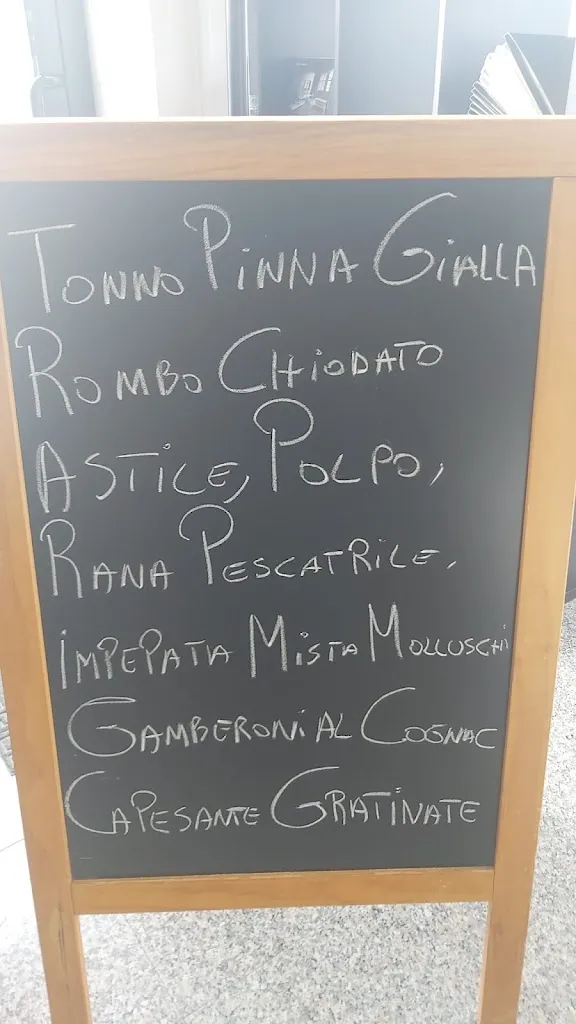 TONNO PINNA GIALLA
ROMBO CHIODATO
ASTICE, POLPO,
RANA PESCATRICE.
IMPEPATA MISTA MOLLUSCHI
GAMBERONI AL COGNAC
CAPESANTE GRATINATE